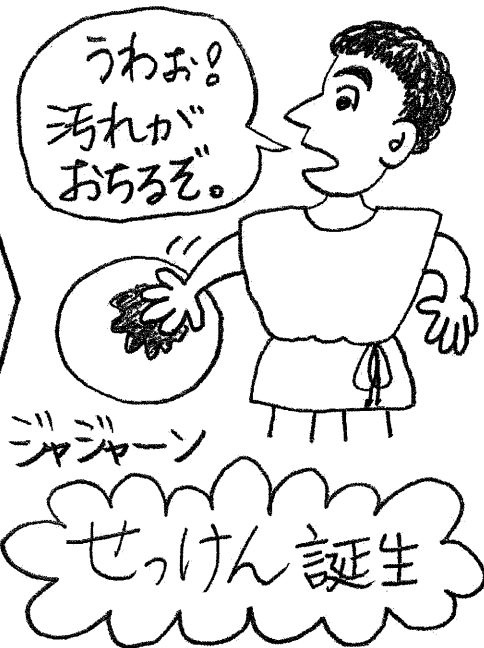 うわぉ!
汚れが
おちるぞ。
ジャジャーン
せっけん誕生